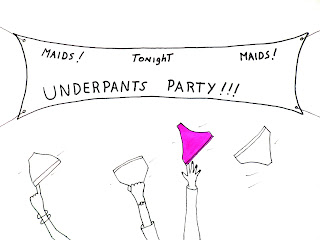 MAIDS! TONIGHT MAIDS!
UNDERPANTS PARTY!!!